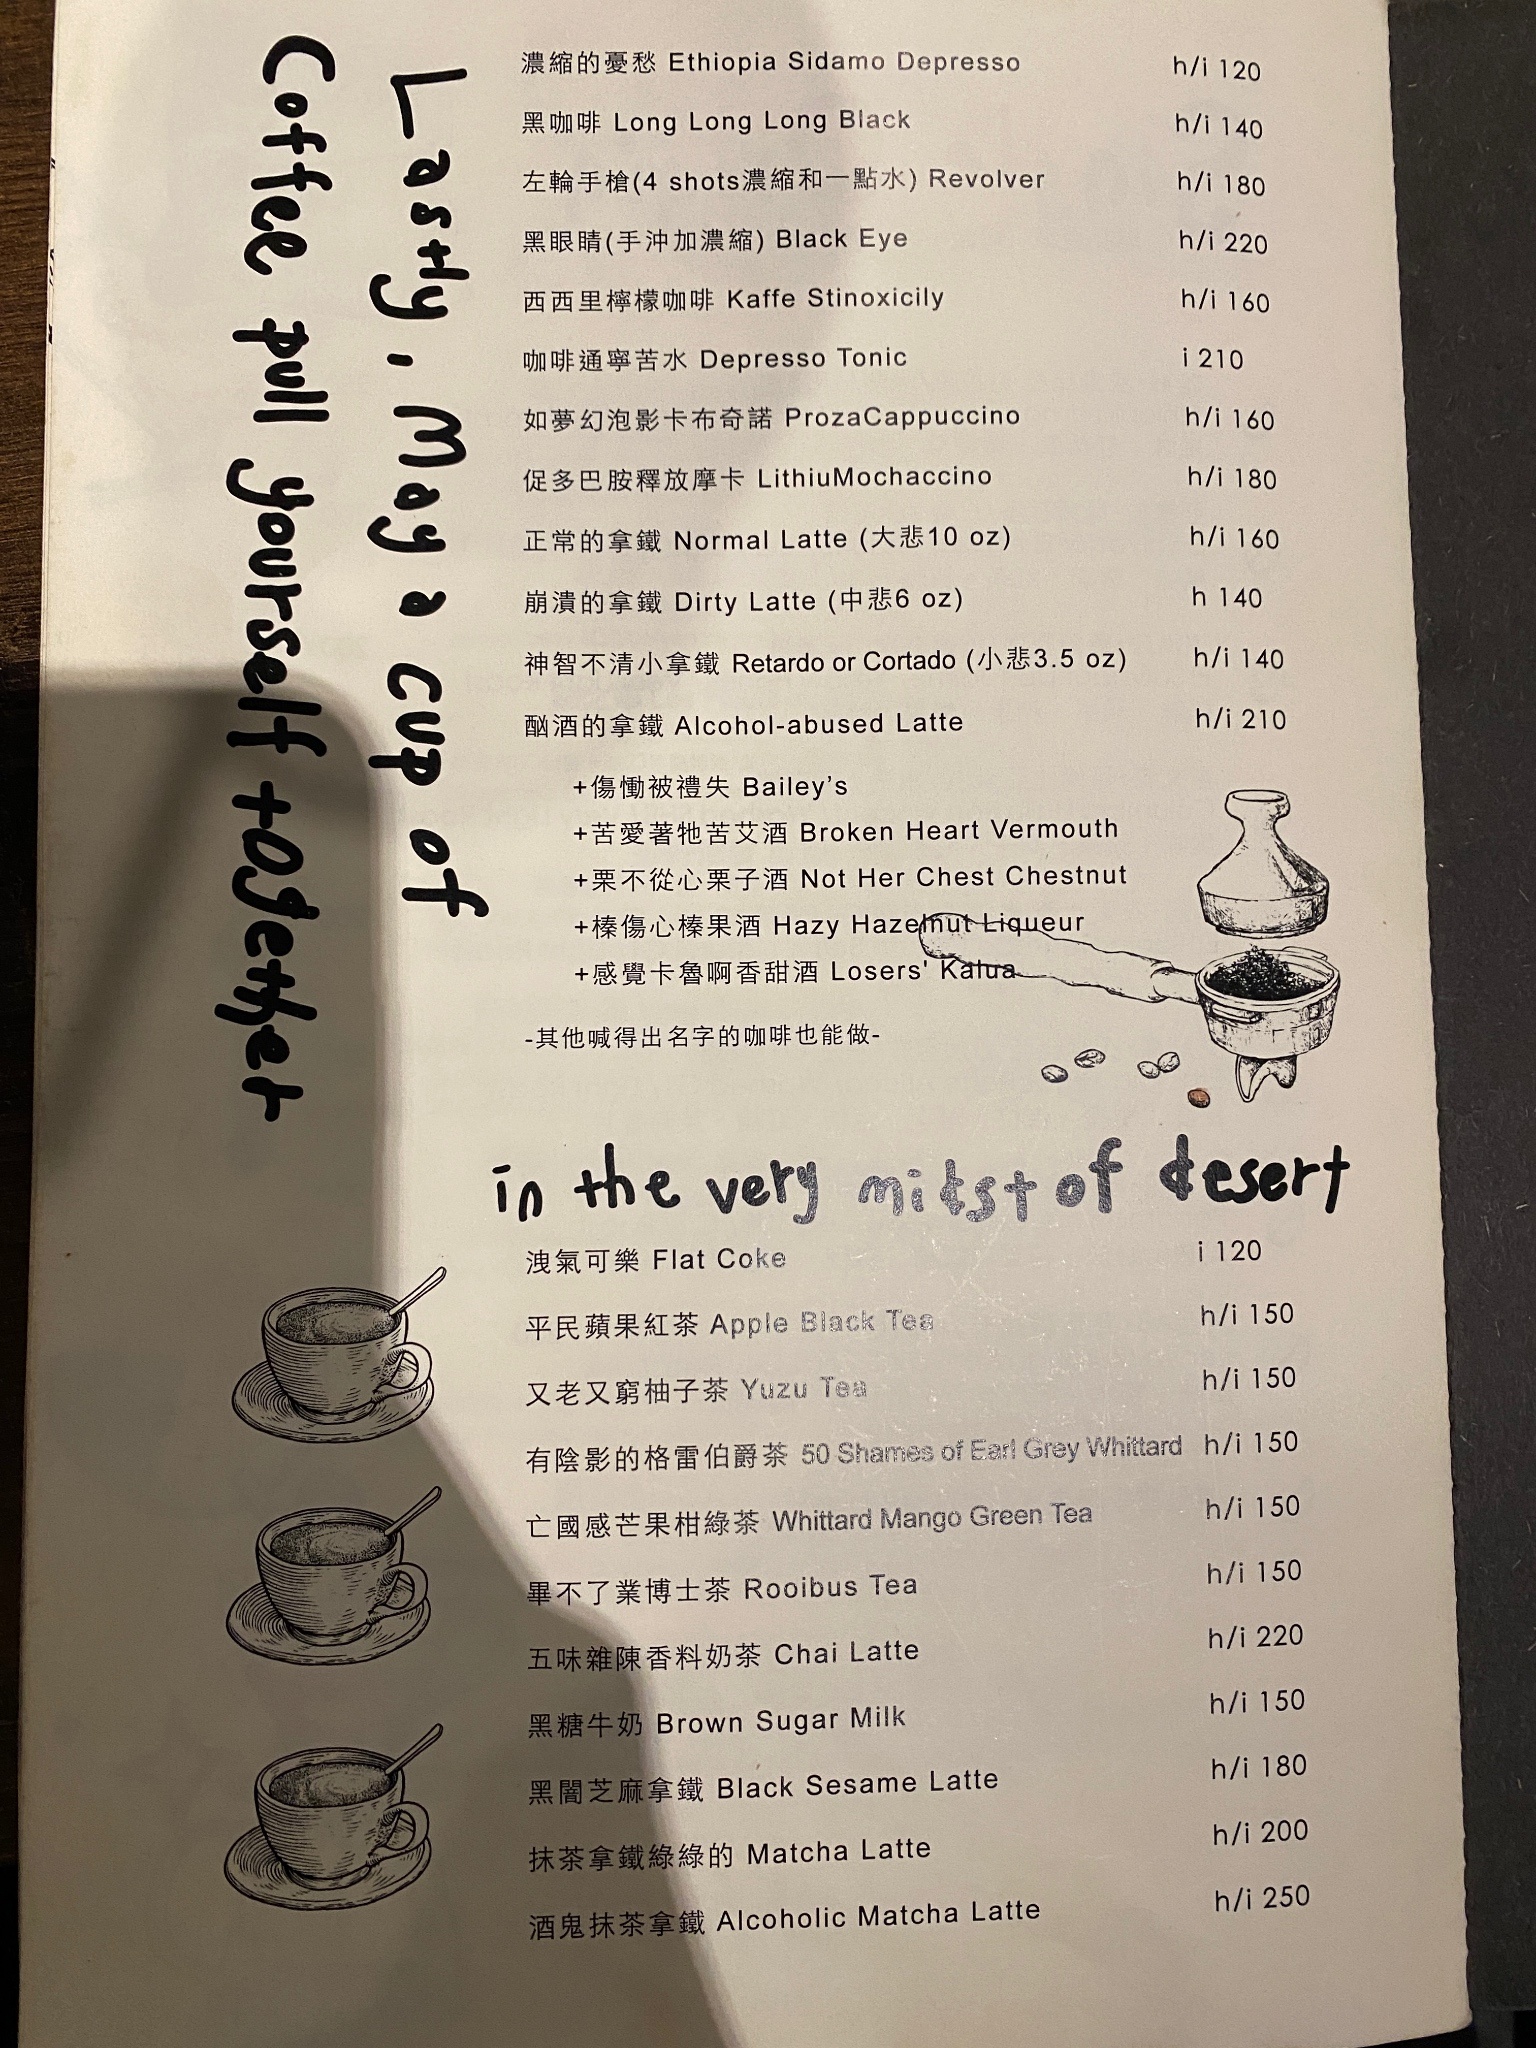 Lastly, May a cup of
Coffee pull yourself together
濃縮的憂愁 Ethiopia Sidamo Depresso h/i 120
黑咖啡 Long Long Long Black h/i 140
左輪手槍(4 shots濃縮和一點水) Revolver h/i 180
黑眼睛(手沖加濃縮) Black Eye h/i 220
西西里檸檬咖啡 Kaffe Stinoxicily h/i 160
咖啡通寧苦水 Depresso Tonic i 210
如夢幻泡影卡布奇諾 ProzaCappuccino h/i 160
促多巴胺釋放摩卡 LithiuMochaccino h/i 180
正常的拿鐵 Normal Latte (大悲10 oz) h/i 160
崩潰的拿鐵 Dirty Latte (中悲6 oz) h 140
神智不清小拿鐵 Retardo or Cortado (小悲3.5 oz) h/i 140
酗酒的拿鐵 Alcohol-abused Latte h/i 210
+傷慟被禮失 Bailey’s
+苦愛著牠苦艾酒 Broken Heart Vermouth
+栗不從心栗子酒 Not Her Chest Chestnut
+榛傷心榛果酒 Hazy Hazelnut Liqueur
+感覺卡魯啊香甜酒 Losers' Kalua
-其他喊得出名字的咖啡也能做-
in the very midst of desert
洩氣可樂 Flat Coke i 120
平民蘋果紅茶 Apple Black Tea h/i 150
又老又窮柚子茶 Yuzu Tea h/i 150
有陰影的格雷伯爵茶 50 Shames of Earl Grey Whittard h/i 150
亡國感芒果柑綠茶 Whittard Mango Green Tea h/i 150
畢不了業博士茶 Rooibus Tea h/i 150
五味雜陳香料奶茶 Chai Latte h/i 220
黑糖牛奶 Brown Sugar Milk h/i 150
黑闇芝麻拿鐵 Black Sesame Latte h/i 180
抹茶拿鐵綠綠的 Matcha Latte h/i 200
酒鬼抹茶拿鐵 Alcoholic Matcha Latte h/i 250